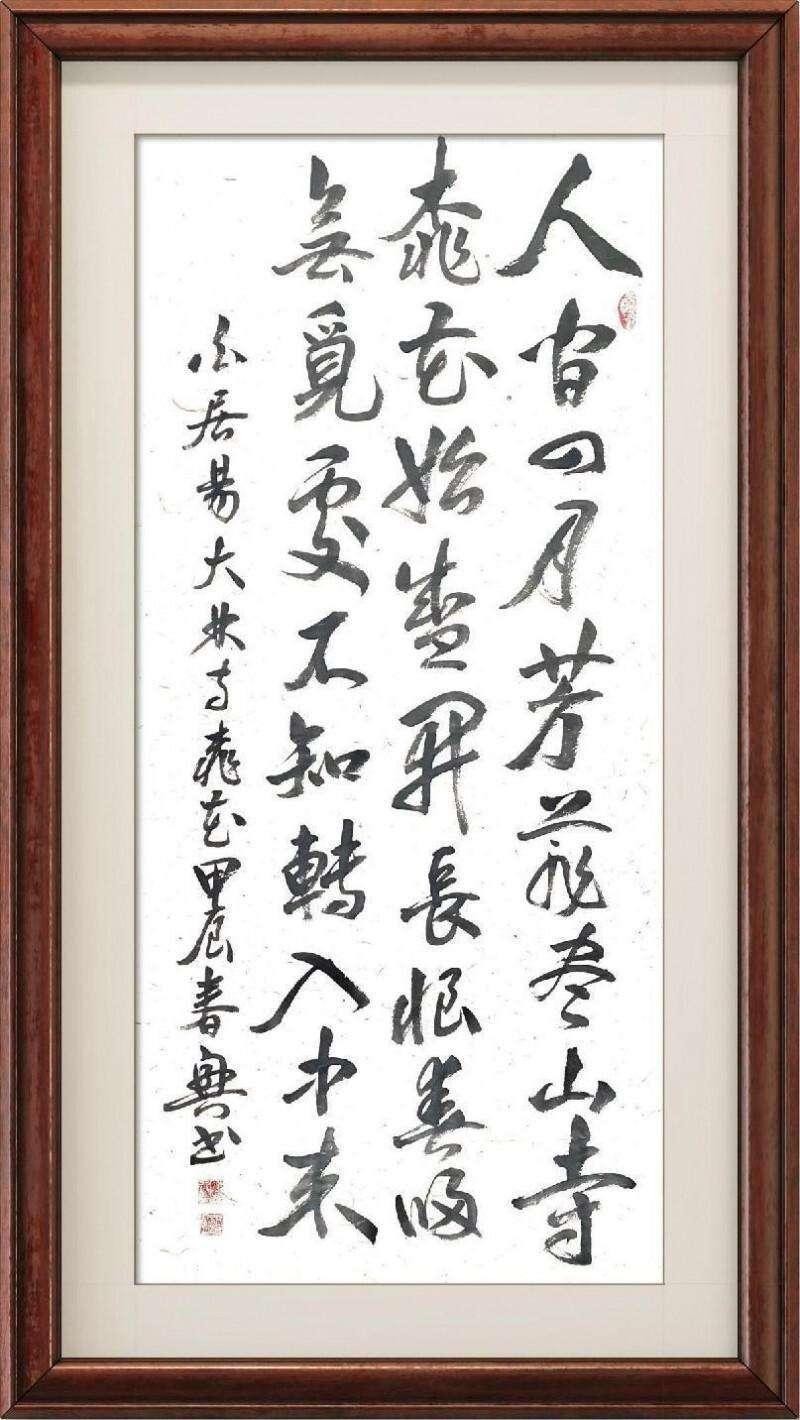 人間四月芳菲盡山寺
桃花始盛開長恨春歸
無覓處不知轉入中來
白居易大林寺桃花甲辰春興書